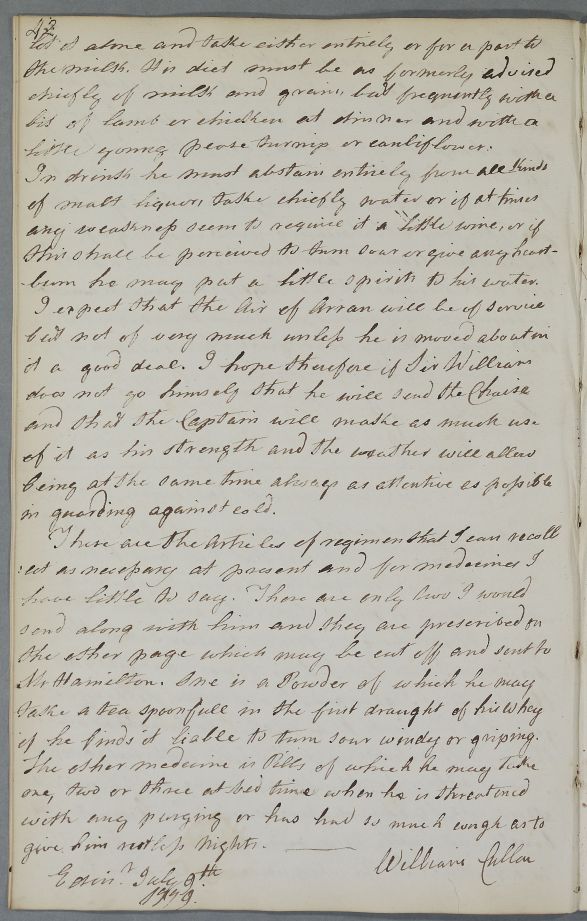 42
let it alone and take either entirely or for a part to
the milk. His diet must be as formerly advised
chiefly of milk and grain, but frequently with a
bit of lamb or chicken at dinner and with a
little young pease turnip or cauliflower.
In drink he must abstain entirely from all kinds
of malt liquor, take chiefly water or if at times
any weakness seem to require it a little wine, or if
this shall be perceived to turn sour or give any heart-
-burn he may put a little spirits to his water.
I expect that the Air of Arran will be of service
but not of very much unless he is moved about in
it a good deal. I hope therefore if Sir William
does not go himself that he will send the Chaise
and that the Captain will make as much use
of it as his strength and the weather will allow
being at the same time always as attentive as possible
in guarding against cold.
These are the Articles of regimen that I can recoll
:ect as necessary at present and for medecines I
have little to say. There are only two I would
send along with him and they are prescribed on
the other page which may be cut off and sent to
Mr Hamilton. One is a Powder of which he may
take a tea spoonfull in the first draught of his Whey
if he finds it liable to turn sour windy or griping.
The other medecine is Pills of which he may take
one, two or three at bed time when he is threatened
with any purging or has had so much cough as to
give him restless nights.
William Cullen
Edinr. July 9th
1779.